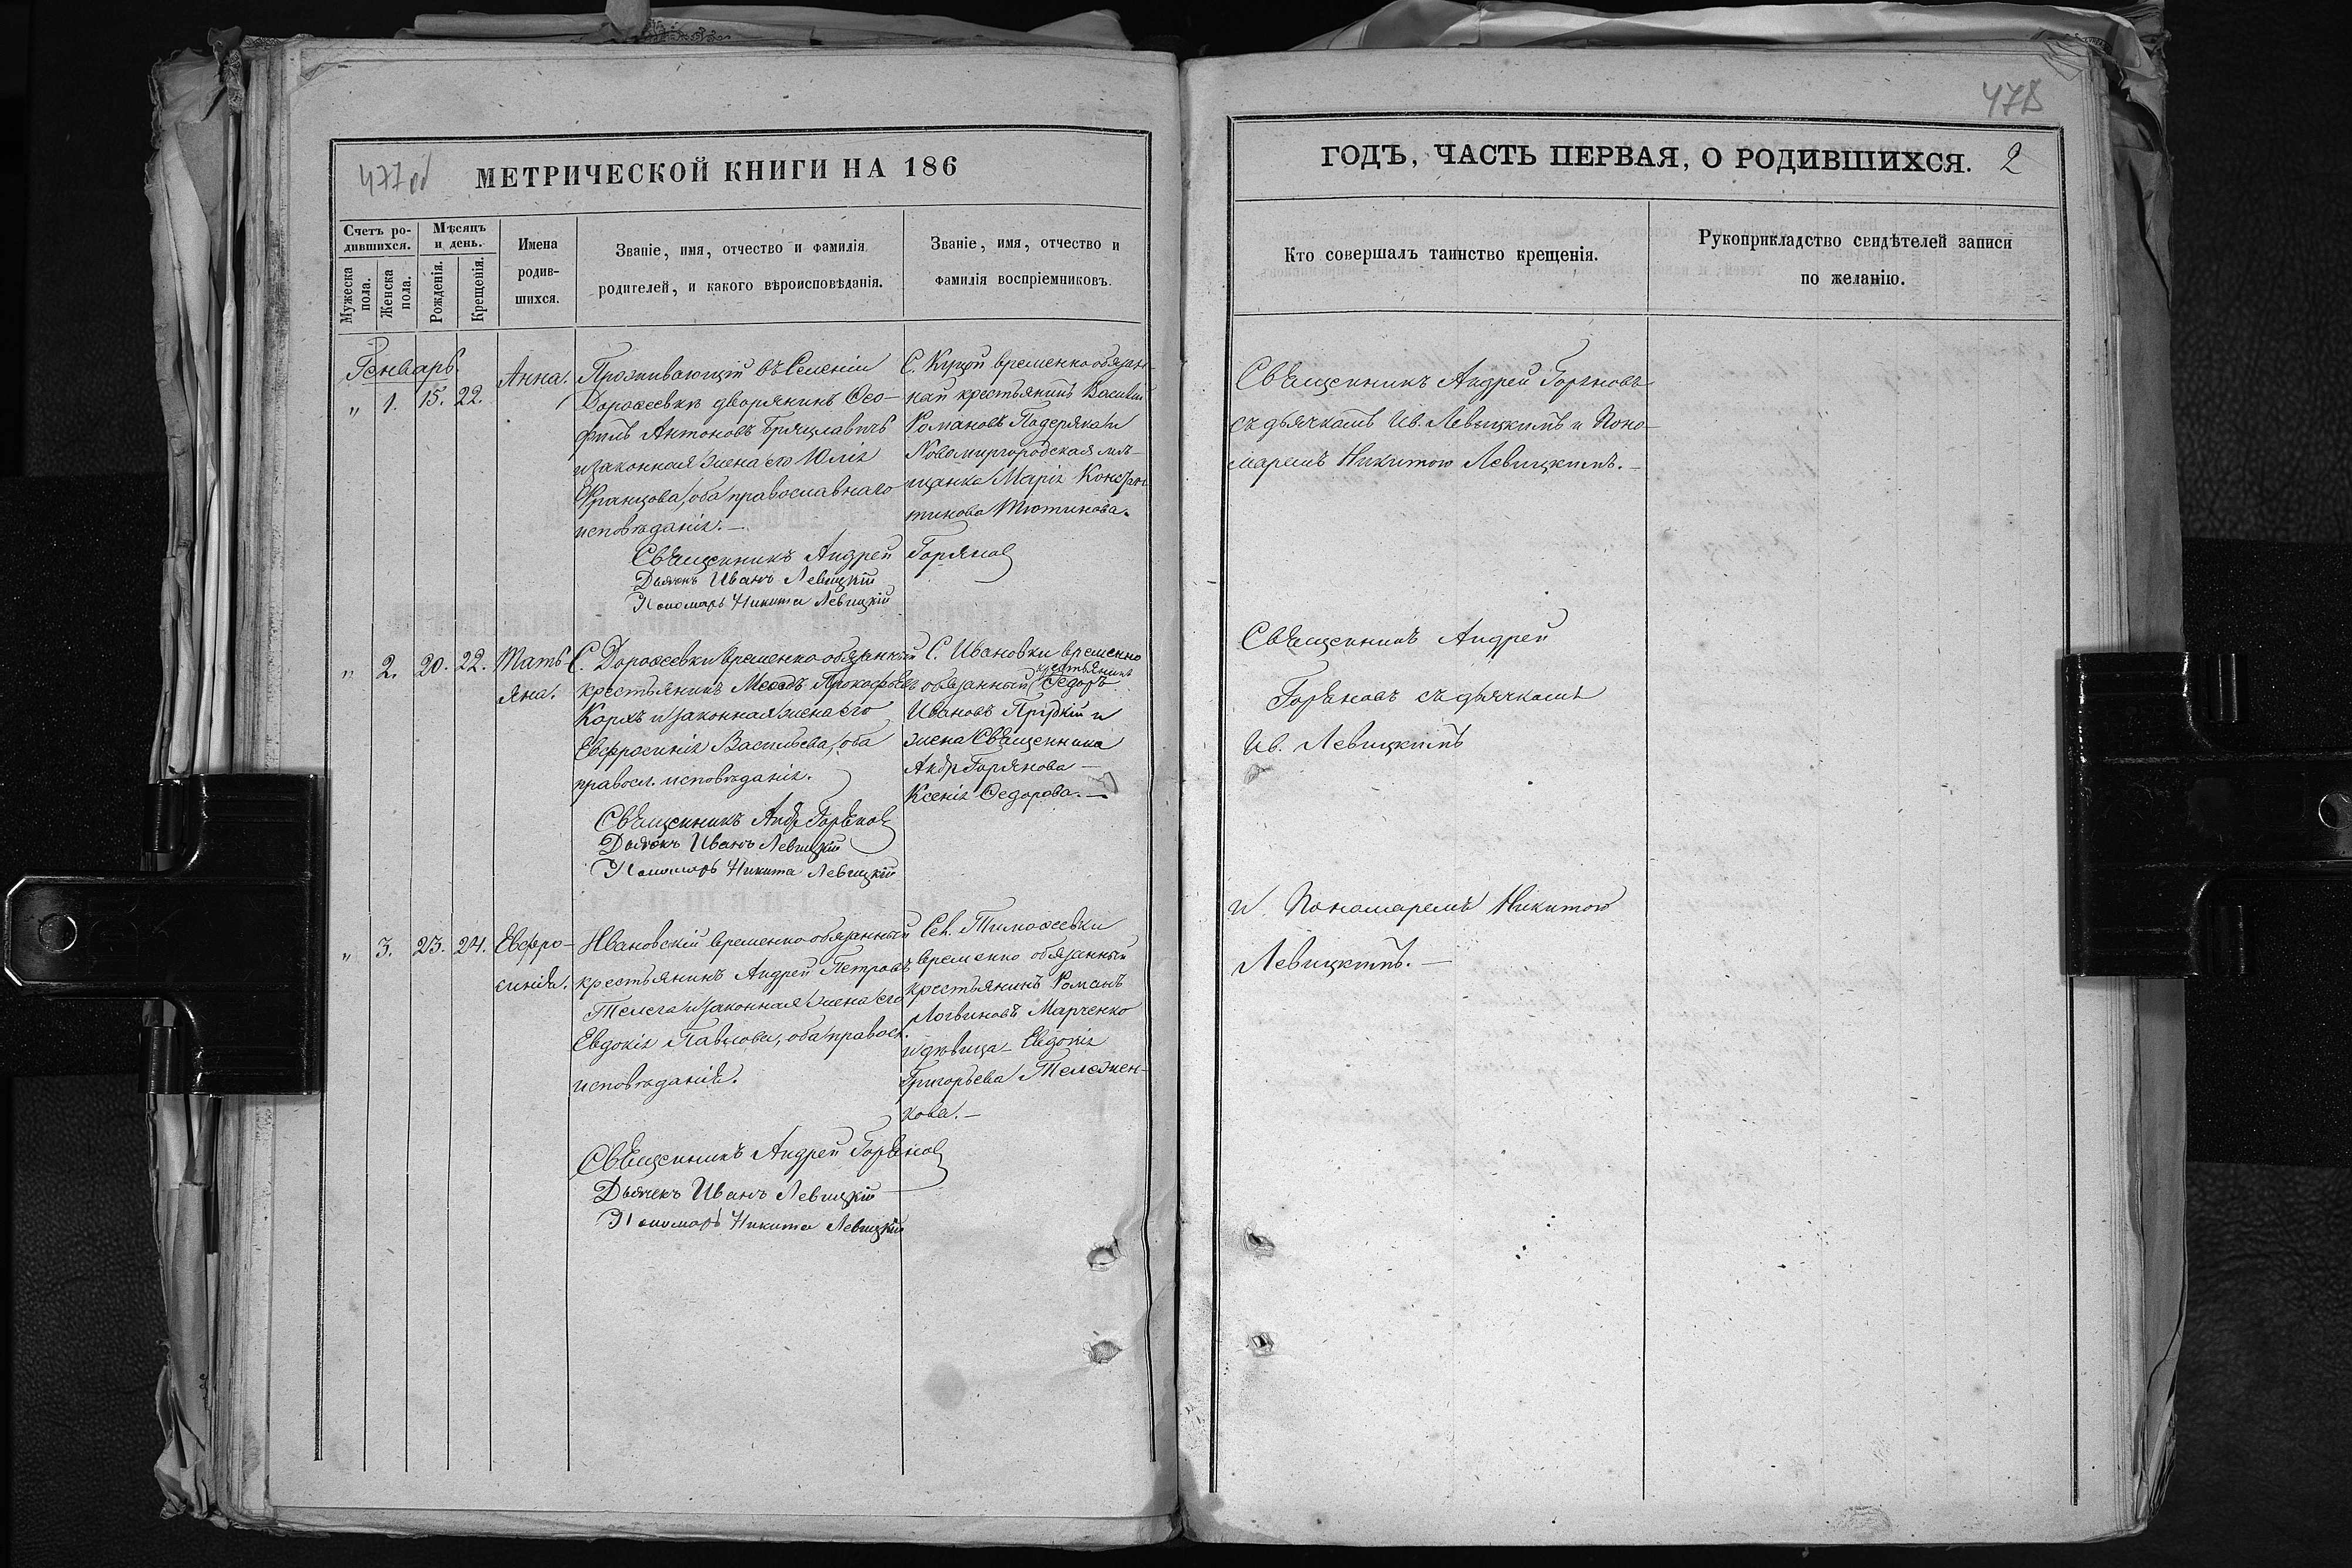 477об
МЕТРИЧЕСКОЙ КНИГИ НА 186
Счетъ ро-
дившихся.
Мужеска
пола.
Женска
пола.
Мѣсяцъ
и день.
Рожденія.
Крещенія.
Имена
родив-
шихся.
Званіе, имя, отчество и фамилія
родителей, и какого вѣроисповѣданія.
Званіе, имя, отчество и
фамилія воспріемниковъ.
Генварь.
" 1. 15. 22.
Анна.
Проживающій въ Селеніи
Дороѳеевкѣ дворянинъ Ѳео-
филъ Антоновъ
и законная жена его Юлія
Францова, оба православнаго
исповѣданія.—
С. временно обязан-
ный крестьянинъ Василій
Романовъ и
Новомиргородская мѣ-
щанка Марія Констан-
тинова Тютинова.
Священникъ Андрей Горяновъ
Дьячокъ Иванъ Левицкій
Пономарь Никита Левицкій
" 2. 20. 22.
Тать-
яна.
С. Дороѳеевки временно обязанный
крестьянинъ Меѳодъ Прокофьевъ
и законная жена его
Евфросинія Васильева, оба
правосл. исповѣданія.
С. Ивановки временно
обязанный крестьянинъ Ѳедоръ
Ивановъ и
жена Священника
Андр. Горянова—
Ксенія Ѳедорова.—
Священникъ Андр. Горяновъ
Дьячокъ Иванъ Левицкій
Пономарь Никита Левицкій
" 3. 23. 24.
Евфро-
синія.
Ивановскій временно обязанный
крестьянинъ Андрей Петровъ
Телега и законная жена его
Евдокія Павлова, оба правосл.
исповѣданія.
Сел. Тимоѳеевки
временно обязанный
крестьянинъ Романъ
Логвиновъ Марченко
и дѣвица Евдокія
Григорьева Тележен-
кова.—
Священникъ Андрей Горяновъ
Дьячекъ Иванъ Левицкій
Пономарь Никита Левицкій
478
ГОДЪ, ЧАСТЬ ПЕРВАЯ, О РОДИВШИХСЯ. 2
Кто совершалъ таинство крещенія.
Рукоприкладство свидѣтелей записи
по желанію.
Священникъ Андрей Горяновъ
съ дьячкомъ Ив. Левицкимъ и Поно-
маремъ Никитою Левицкимъ.—
Священникъ Андрей
Горяновъ съ дьячкомъ
Ив. Левицкимъ
и Пономаремъ Никитою
Левицкимъ.—